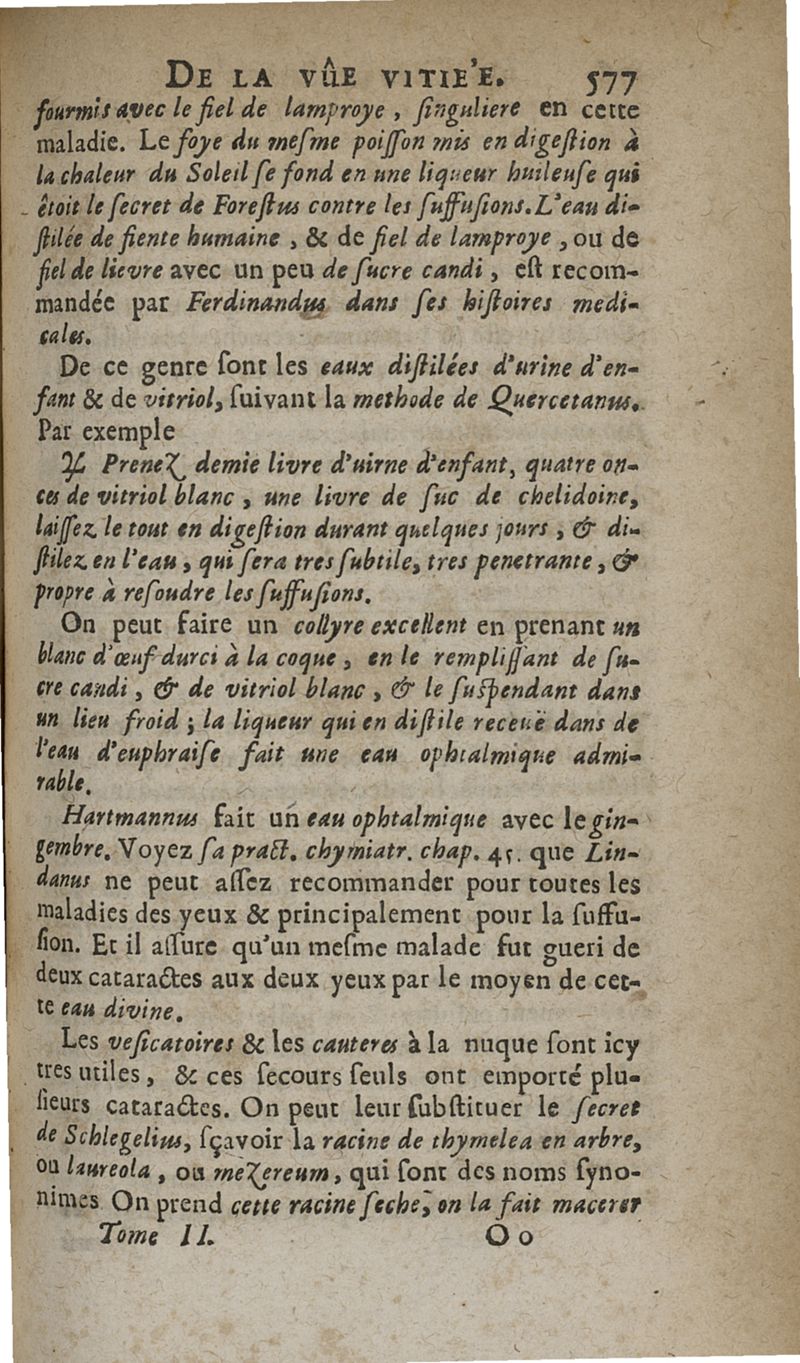 DE LA VÛE VITIE'E. 577
fourmis avec le fiel de lamproye, ſinguliere en cette
maladie. Le foye du meſme poiſſon mis en digeſtion à
la chaleur du Soleil ſe fond en une liqueur huileuſe qui
êtoit le ſecret de Foreſtus contre les ſuffuſions. L'eau di-
ſtilée de fiente humaine, & de fiel de lamproye, ou de
fiel de lievre avec un peu de ſucre candi, eſt recom-
mandée par Ferdinandus dans ſes hiſtoires medi-
cales.
De ce genre ſont les eaux diſtilées d'urine d'en-
fant & de vitriol, ſuivant la methode de Quercetanus.
Par exemple
♃ Prenez demie livre d'uirne d'enfant, quatre on-
ces de vitriol blanc, une livre de ſuc de chelidoine,
laiſſez le tout en digeſtion durant quelques jours, & di-
ſtilez en l'eau, qui ſera tres ſubtile, tres penetrante, &
propre à reſoudre les ſuffuſions.
On peut faire un collyre excellent en prenant un
blanc d'œuf durci à la coque, en le rempliſſant de ſu-
cre candi, & de vitriol blanc, & le ſuſpendant dans
un lieu froid; la liqueur qui en diſtile receuë dans de
l'eau d'euphraiſe fait une eau ophtalmique admi-
rable.
Hartmannus fait un eau ophtalmique avec le gin-
gembre. Voyez ſa pract. chymiatr. chap. 45. que Lin-
danus ne peut aſſez recommander pour toutes les
maladies des yeux & principalement pour la ſuffu-
ſion. Et il aſſure qu'un meſme malade fut gueri de
deux cataractes aux deux yeux par le moyen de cet-
te eau divine.
Les veſicatoires & les cauteres à la nuque ſont icy
tres utiles, & ces ſecours ſeuls ont emporté plu-
ſieurs cataractes. On peut leur ſubſtituer le ſecret
de Schlegelius, ſçavoir la racine de thymelea en arbre,
ou laureola, ou mezereum, qui ſont des noms ſyno-
nimes On prend cette racine ſeche, on la fait macerer
Tome II. Oo